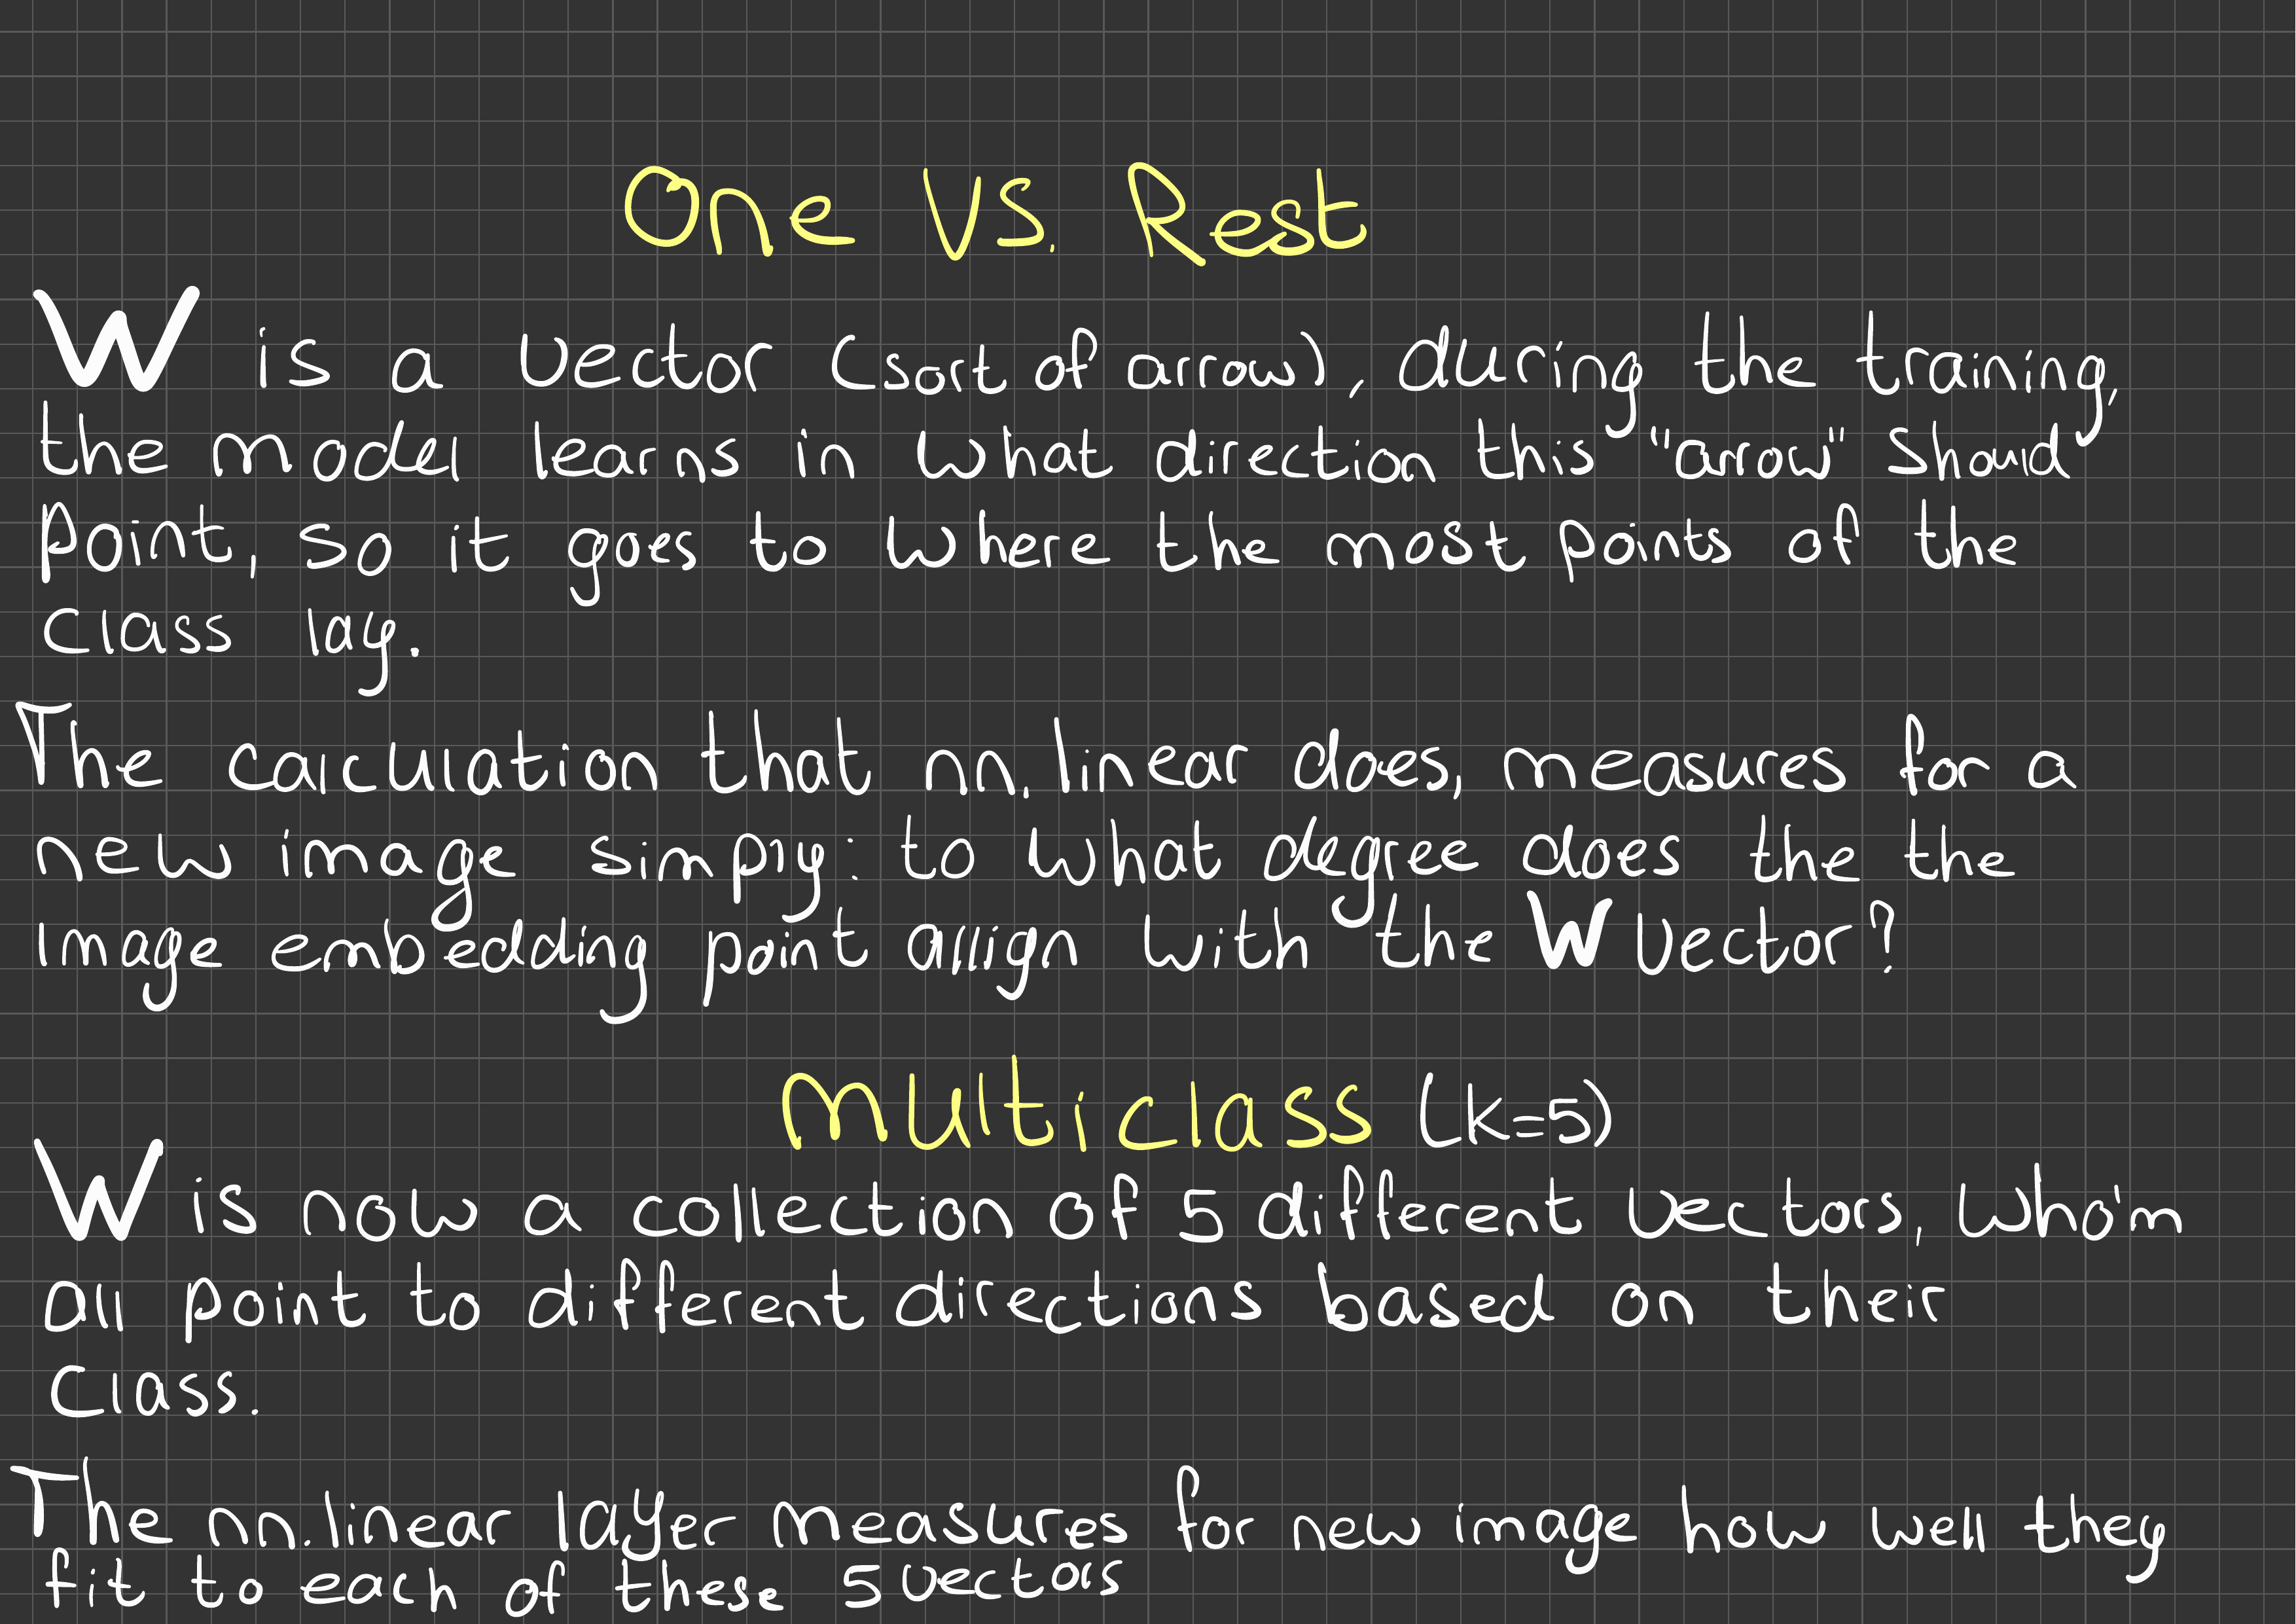 One VS. Rest
W is a vector (sort of arrow), during the training,
the model learns in what direction this "arrow" should
point, so it goes to where the most points of the
Class lay.
The calculation that nn.linear does, measures for a
new image simply: to what degree does the the
image embedding point allign with the W vector?
Multiclass (k=5)
W is now a collection of 5 different vectors, who'm
all point to different directions based on their
Class.
The nn.linear layer measures for new image how well they
fit to each of these 5 vectors